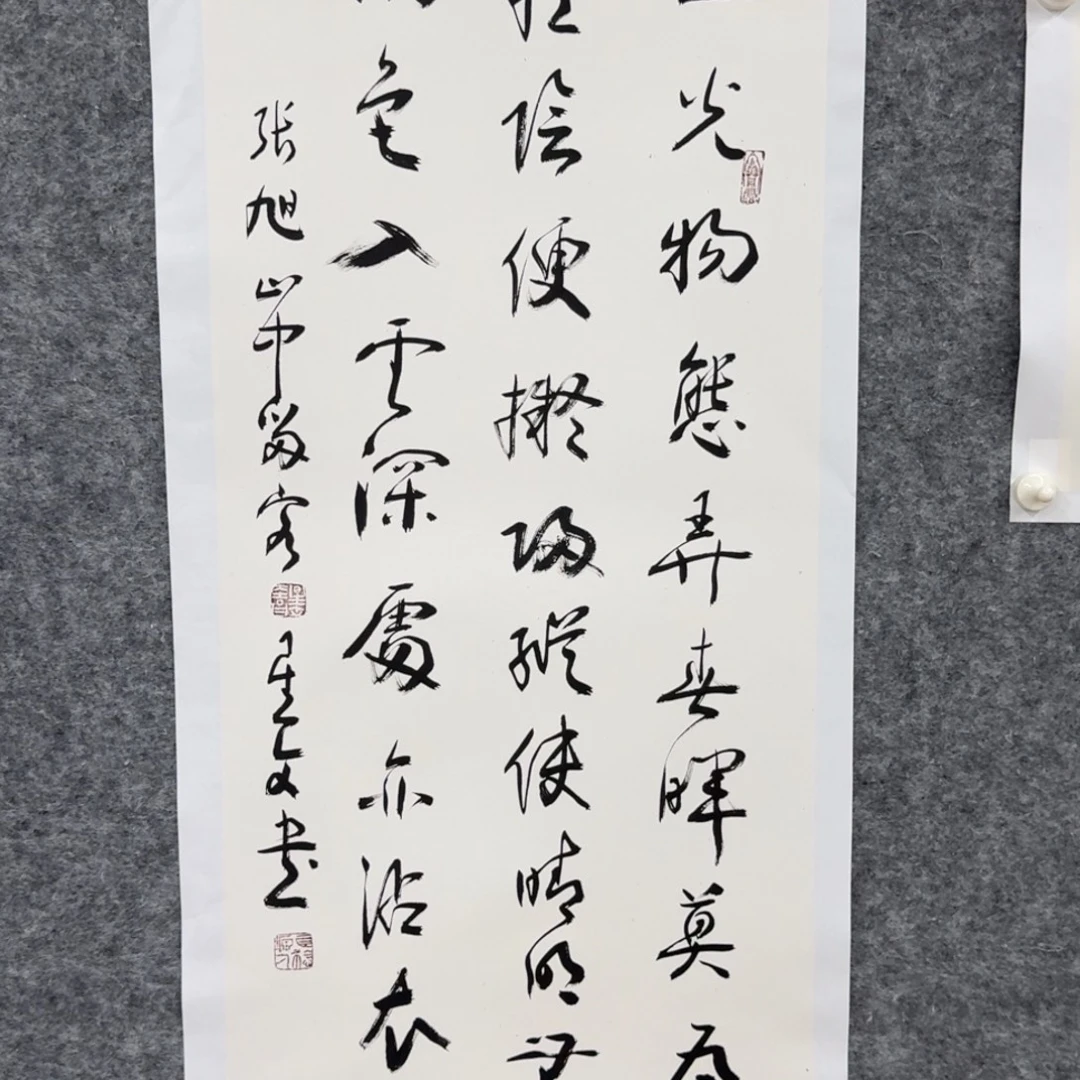 光物態弄春暉莫為
輕陰便擬歸縱使晴明無
色入雲深處亦沾衣
張旭山中留客
星文书